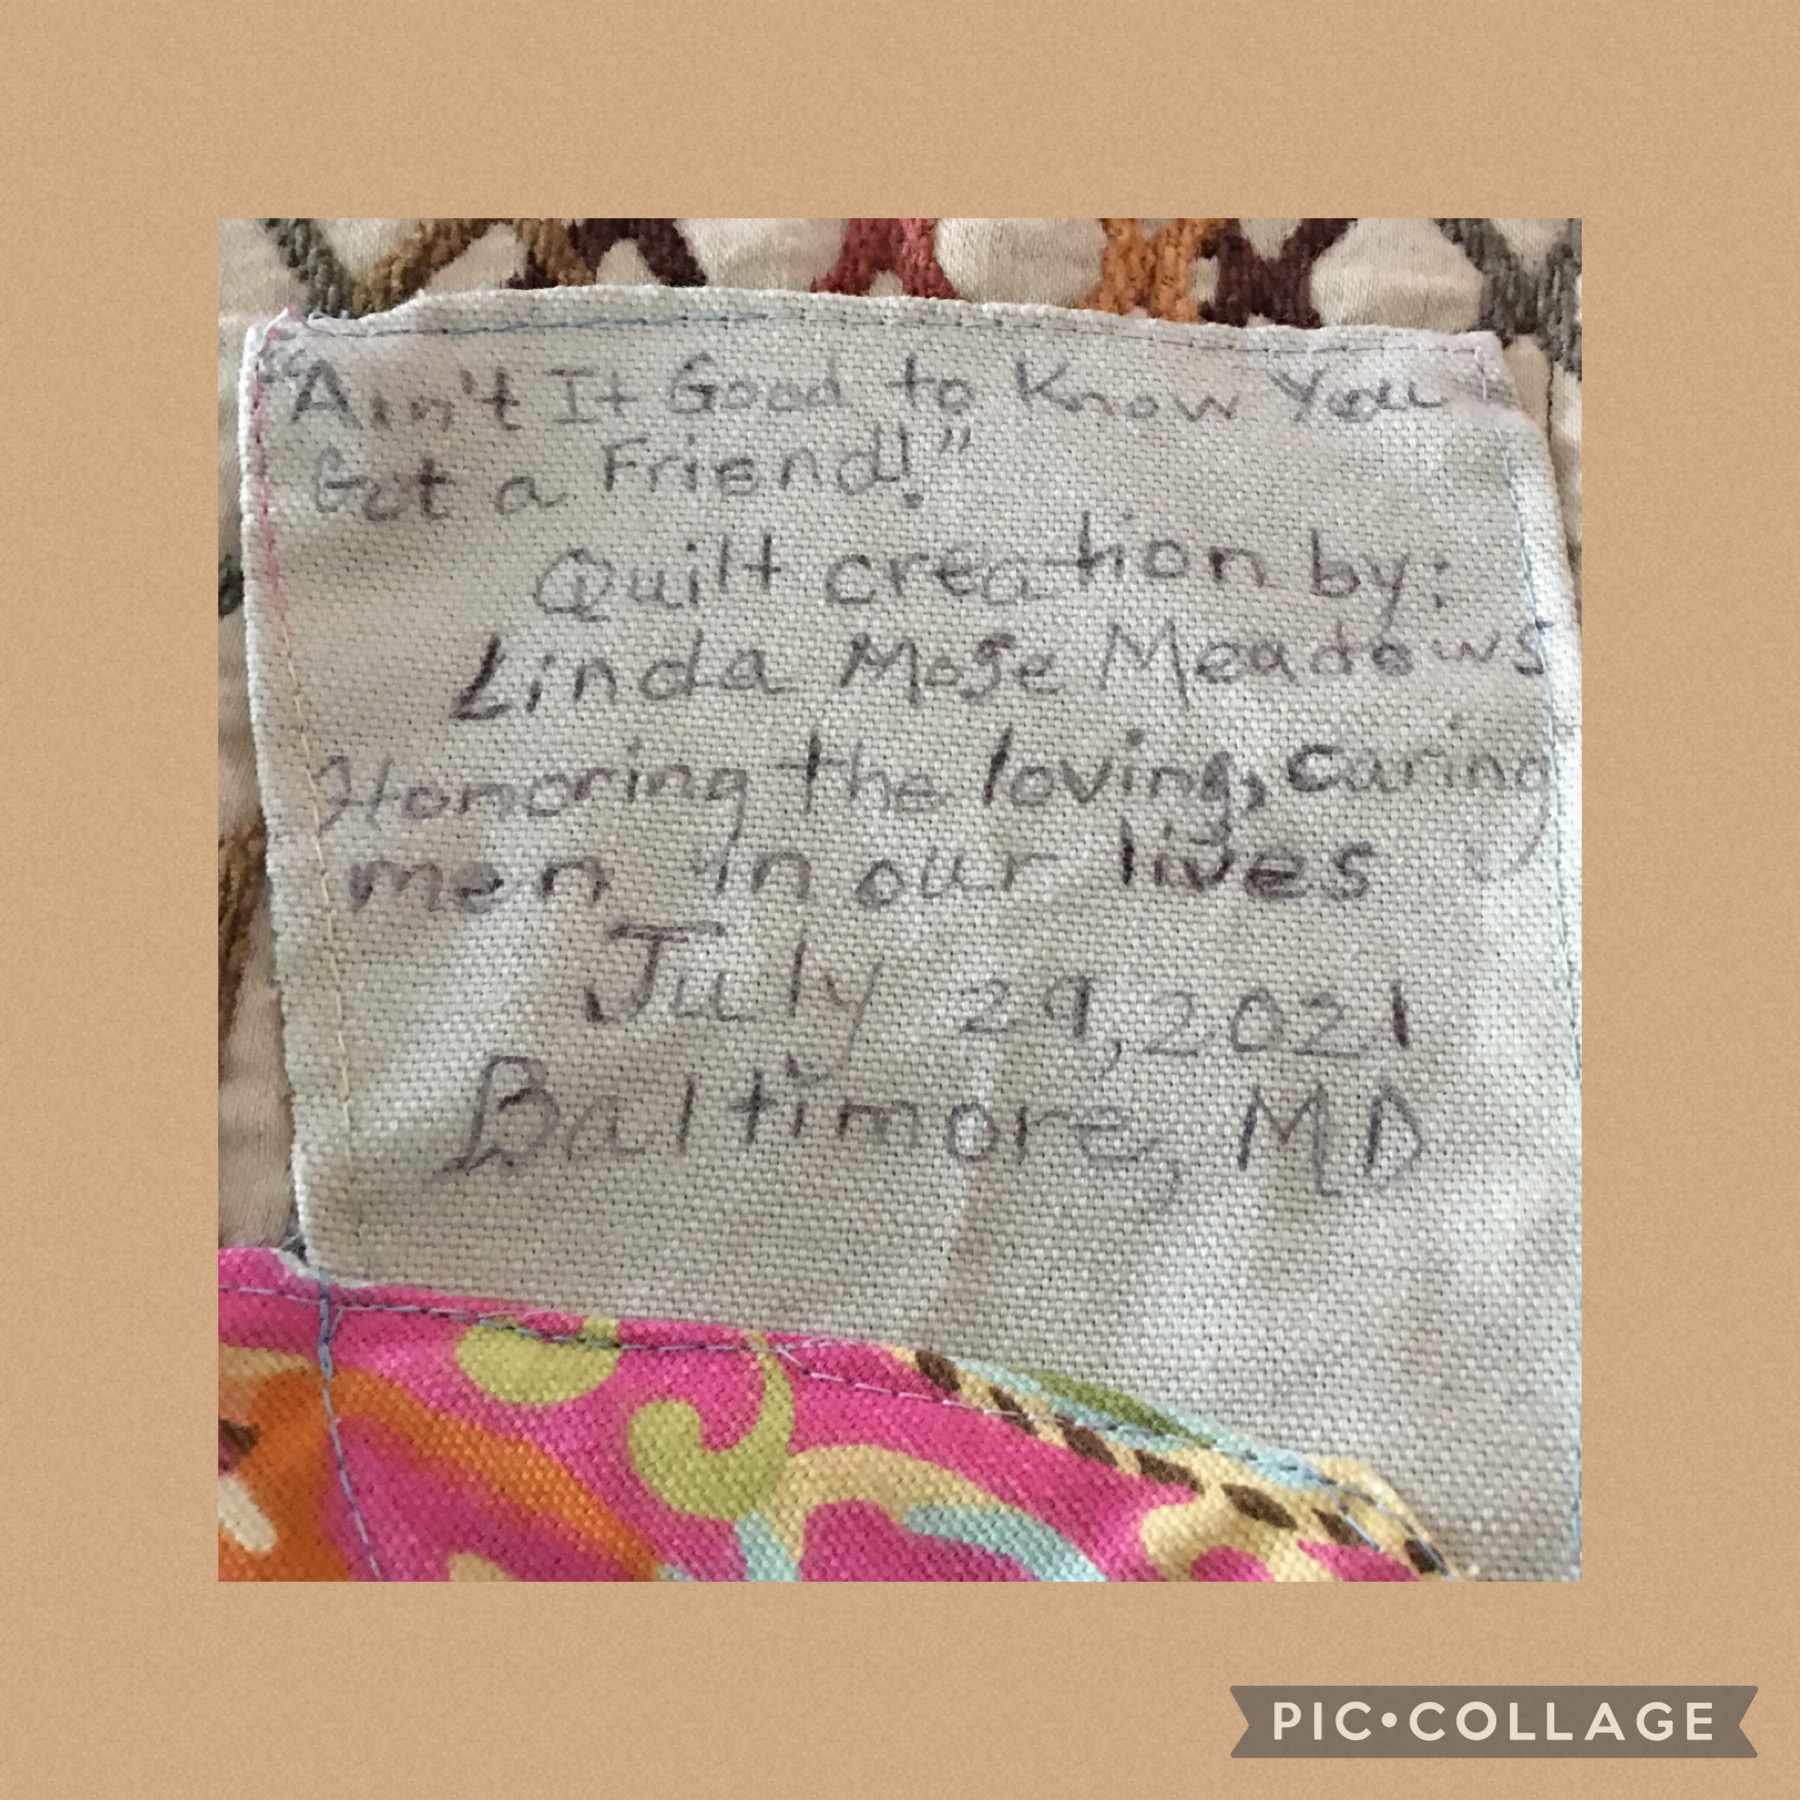 "Ain't It Good to Know You
Got a Friend!"
Quilt creation by:
Linda Mose Meadows
Honoring the loving, caring
men in our lives
July 29, 2021
Baltimore, MD
PIC•COLLAGE